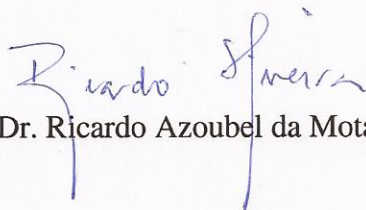 Ricardo Silveira
Dr. Ricardo Azoubel da Mota